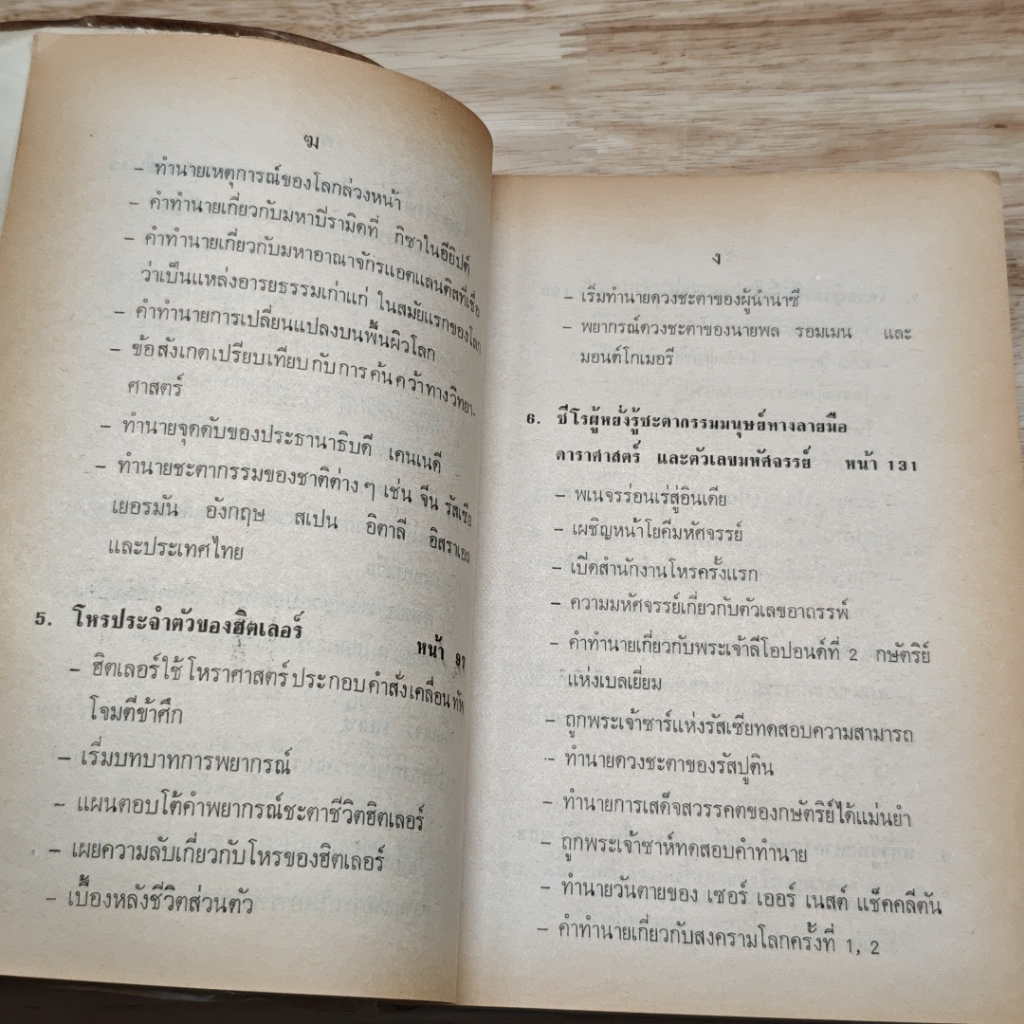 ฆ
- ทำนายเหตุการณ์ของโลกล่วงหน้า
- คำทำนายเกี่ยวกับมหาปิรามิดที่ กิซาในอียิปต์
- คำทำนายเกี่ยวกับมหาอาณาจักรแอตแลนติสที่เชื่อ
ว่าเป็นแหล่งอารยธรรมเก่าแก่ ในสมัยแรกของโลก
- คำทำนายการเปลี่ยนแปลงบนพื้นผิวโลก
- ข้อสังเกตเปรียบเทียบกับการค้นคว้าทางวิทยา-
ศาสตร์
- ทำนายจุดดับของประธานาธิบดี เคนเนดี
- ทำนายชะตากรรมของชาติต่าง ๆ เช่น จีน รัสเซีย
เยอรมัน อังกฤษ สเปน อิตาลี อิสราเอล
และประเทศไทย
5. โหรประจำตัวของฮิตเลอร์ หน้า 97
- ฮิตเลอร์ใช้โหราศาสตร์ประกอบคำสั่งเคลื่อนทัพ
โจมตีข้าศึก
- เริ่มบทบาทการพยากรณ์
- แผนตอบโต้คำพยากรณ์ชะตาชีวิตฮิตเลอร์
- เผยความลับเกี่ยวกับโหรของฮิตเลอร์
- เบื้องหลังชีวิตส่วนตัว
ง
- เริ่มทำนายดวงชะตาของผู้นำนาซี
- พยากรณ์ดวงชะตาของนายพล รอมเมน และ
มอนต์โกเมอรี
6. ชีโรผู้หยั่งรู้ชะตากรรมมนุษย์ทางลายมือ
ดาราศาสตร์ และตัวเลขมหัศจรรย์ หน้า 131
- พเนจรร่อนเร่สู่อินเดีย
- เผชิญหน้าโยคีมหัศจรรย์
- เปิดสำนักงานโหรครั้งแรก
- ความมหัศจรรย์เกี่ยวกับตัวเลขอาถรรพ์
- คำทำนายเกี่ยวกับพระเจ้าลีโอปอนด์ที่ 2 กษัตริย์
แห่งเบลเยี่ยม
- ถูกพระเจ้าซาร์แห่งรัสเซียทดสอบความสามารถ
- ทำนายดวงชะตาของรัสปูติน
- ทำนายการเสด็จสวรรคตของกษัตริย์ได้แม่นยำ
- ถูกพระเจ้าซาห์ทดสอบคำทำนาย
- ทำนายวันตายของ เซอร์ เออร์ เนสต์ แช็คคลีตัน
- คำทำนายเกี่ยวกับสงครามโลกครั้งที่ 1, 2